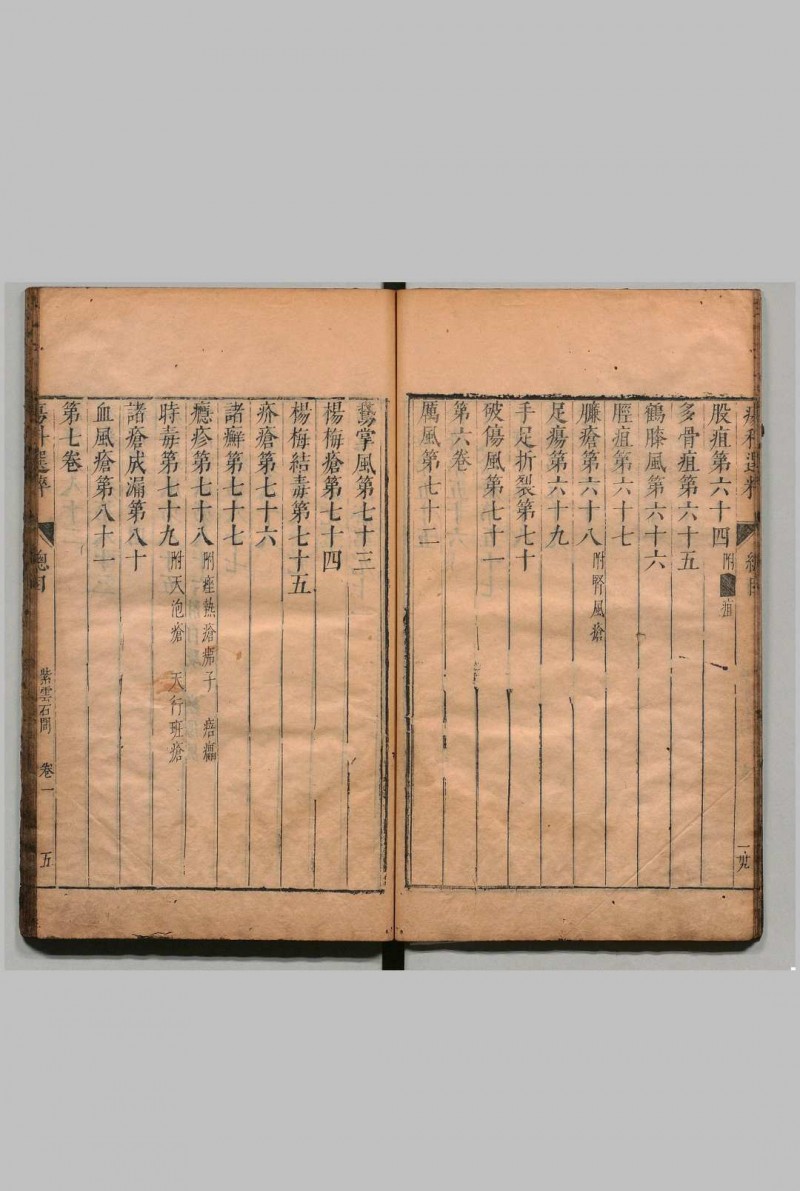 股疽第六十四 附 疽
多骨疽第六十五
鶴膝風第六十六
脛疽第六十七
臁瘡第六十八 附腎風瘡
足瘍第六十九
手足折裂第七十
破傷風第七十一
第六卷
厲風第七十二
鵞掌風第七十三
楊梅瘡第七十四
楊梅結毒第七十五
疥瘡第七十六
諸癬第七十七
癮疹第七十八 附痤熱瘡疿子 痞𤺥
時毒第七十九 附天泡瘡 天行班瘡
諸瘡成漏第八十
血風瘡第八十一
第七卷
選粹 總目 紫雲石閒 卷一 五